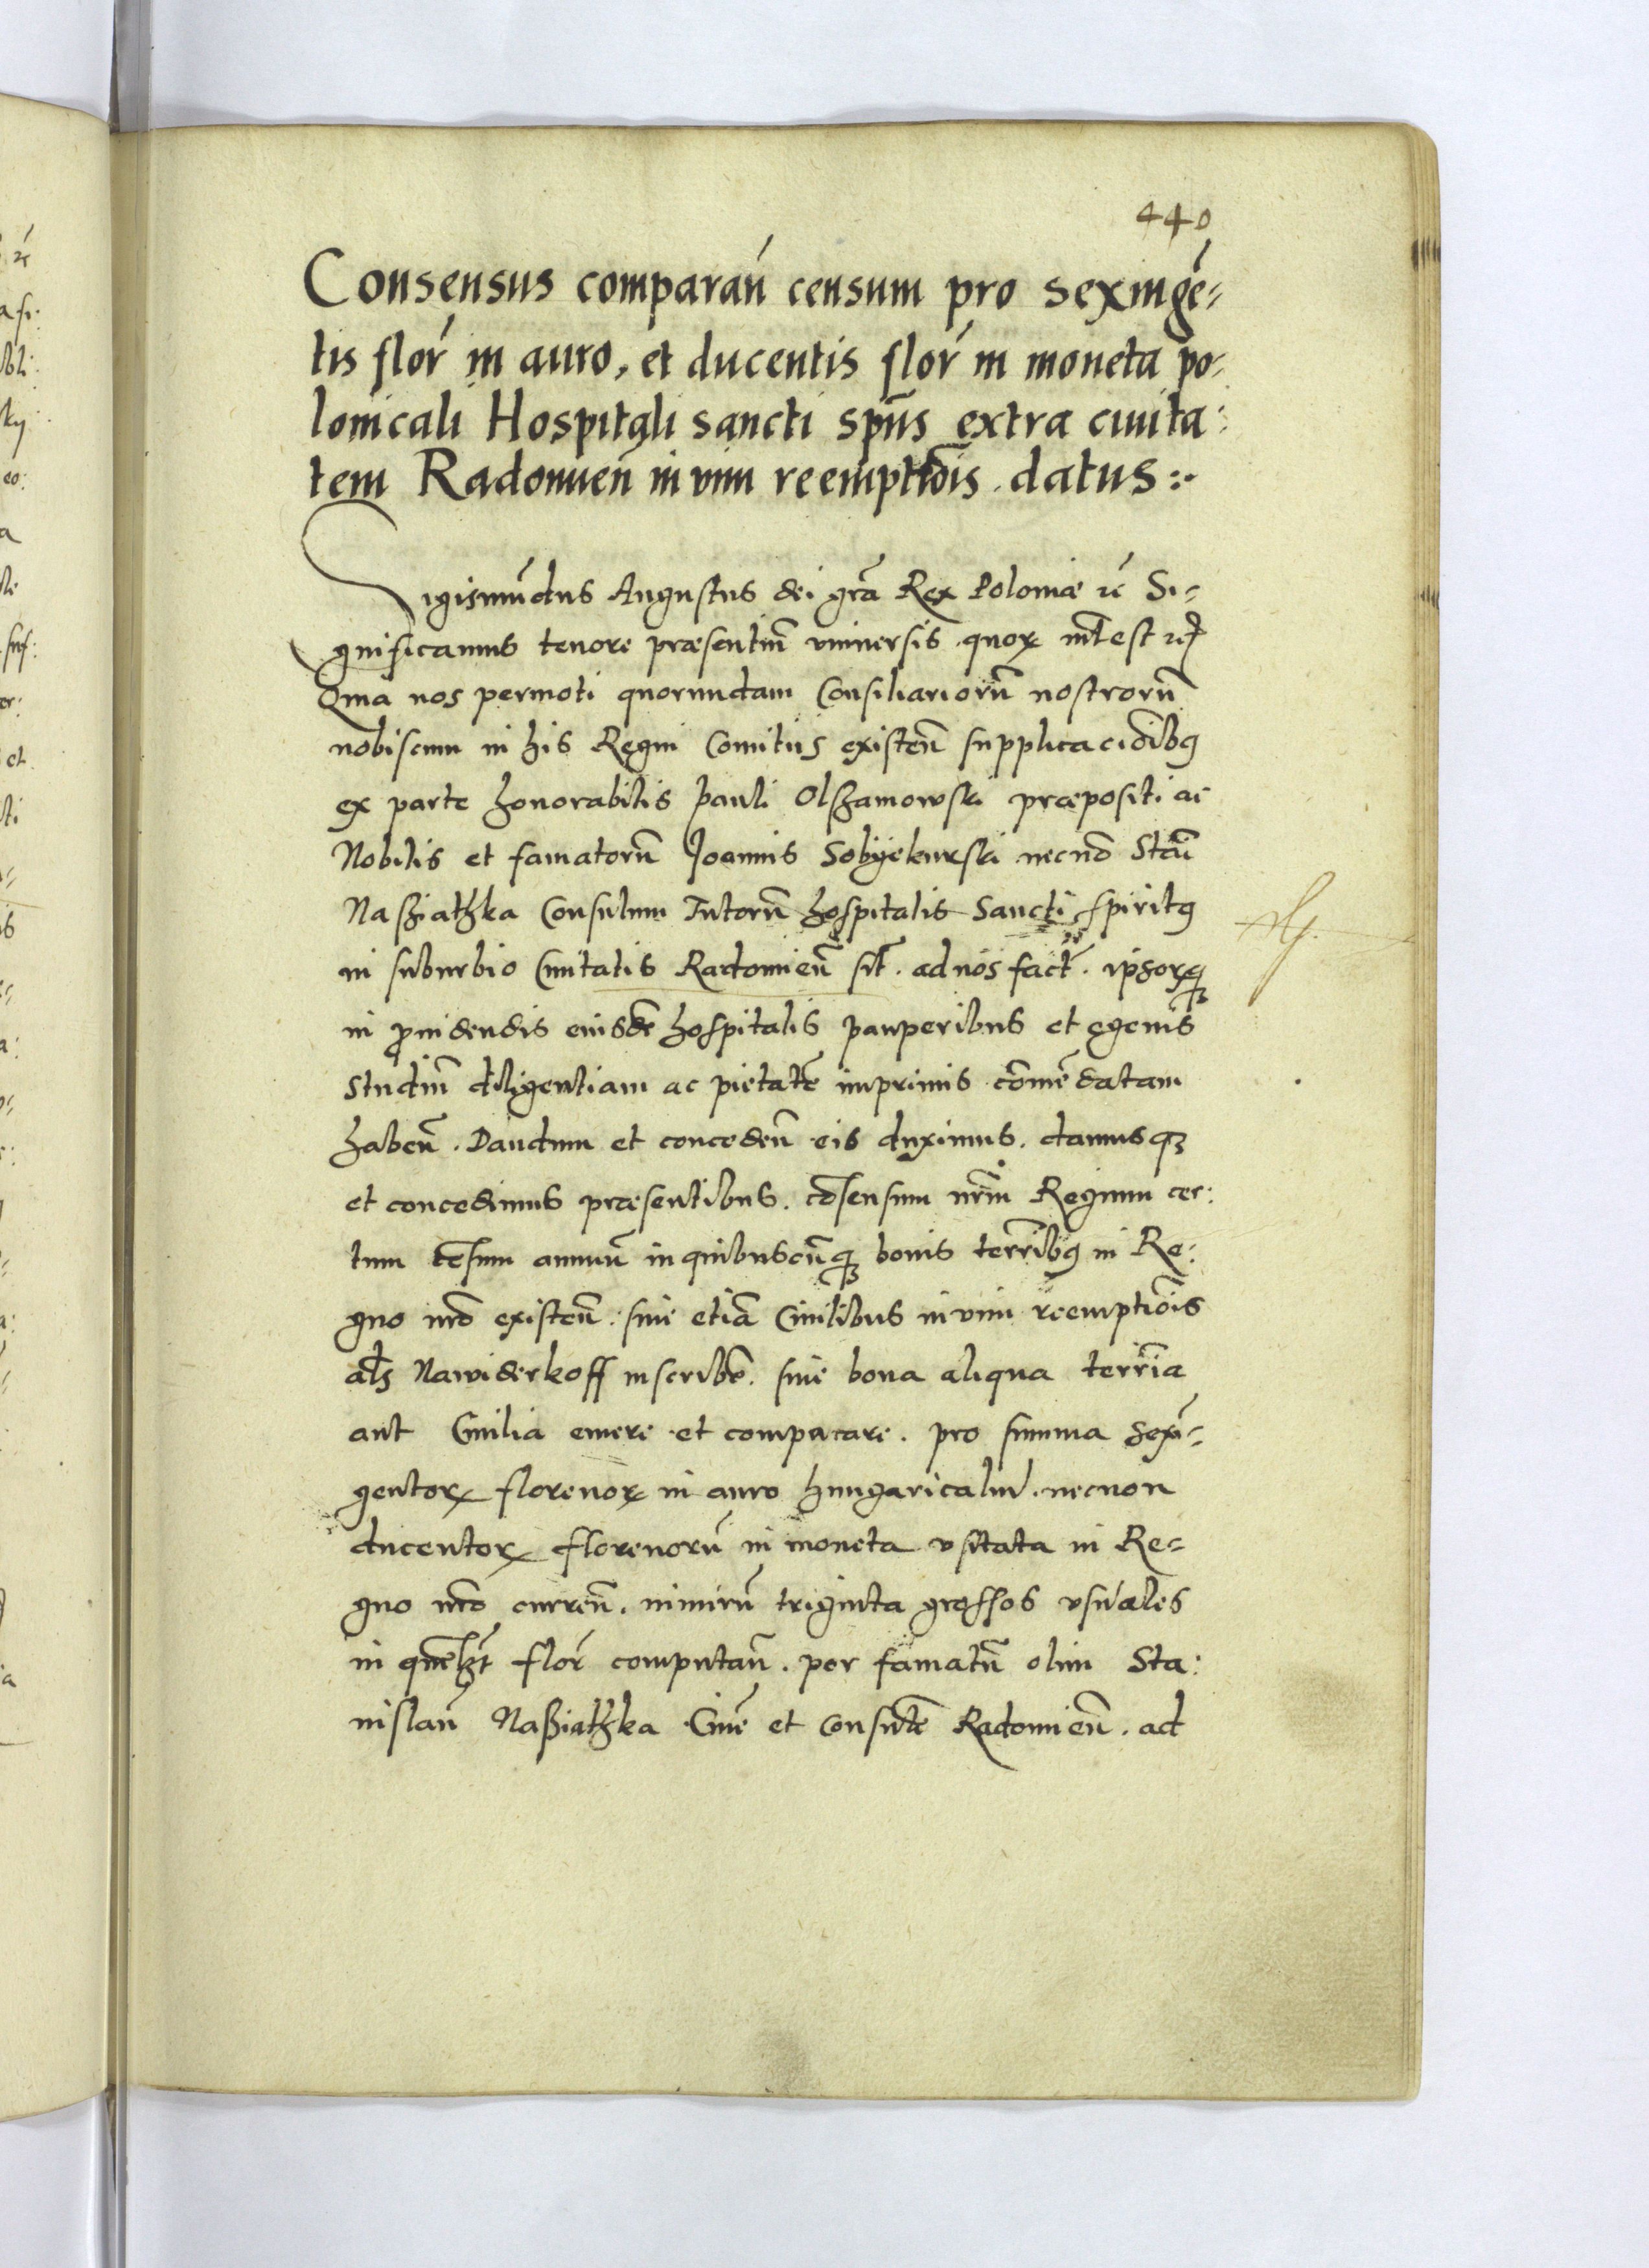 440
Consensus comparan̄ censum pro sexinge͂=
tis flor̄ in auro, et ducentis flor̄ in moneta po=
lonicali Hospitali sancti sp̄ūs extra ciuita=
tem Radomien̄ in vim reemptiōīs datus:·
Sigismūdus Augustus dei gr̄a Rex Poloniæ ꝛc̄ Si=
gnificamus tenore præsentiū vniuersis quoꝝ int̄est ꝛc̄
Quia nos permoti quorundam Consiliariorū nostrorū
nobiscum in his Regni Comitiis existen̄ supplicaciōibꝯ
ex parte honorabilis Pauli Olszamowski præpositi ac
Nobilis et famatorū Joannis Sobyekurski necnō Stan̄
Nasziathka Consulum Tutorū hospitalis Sancti spiritꝯ
in suburbio Ciuitatis Radomien̄ sit̄. ad nos fact̄. ipsoꝝqꝫ
in ꝓuidendis eiusdē hospitalis pauperibus et egenis
studiū diligentiam ac pietatē imprimis cōmēdatam
haben̄. Dandum et conceden̄ eis duximus. damusqꝫ
et concedimus præsentibus. cōsensum nr̄m̄ Regium cer=
tum cēsum annuū in quibuscūqꝫ bonis terr̄ibꝯ in Re=
gno nr̄o existen̄. siue etiā Ciuilibus in vim reemptiōīs
al̄s Nawiderkoff inscribē. siue bona aliqua terr̄ia
aut Ciuilia emere et comparare. pro summa sexī=
gentoꝝ florenoꝝ in auro hungaricaliū. necnon
ducentoꝝ florenorū in moneta vsitata in Re=
gno nr̄o curren̄. nimirū triginta grossos vsuales
in quēlꝫt flor̄ computan̄. per famatū olim Sta=
nislaū Nasziathka Ciuē et Consulē Radomien̄. ad